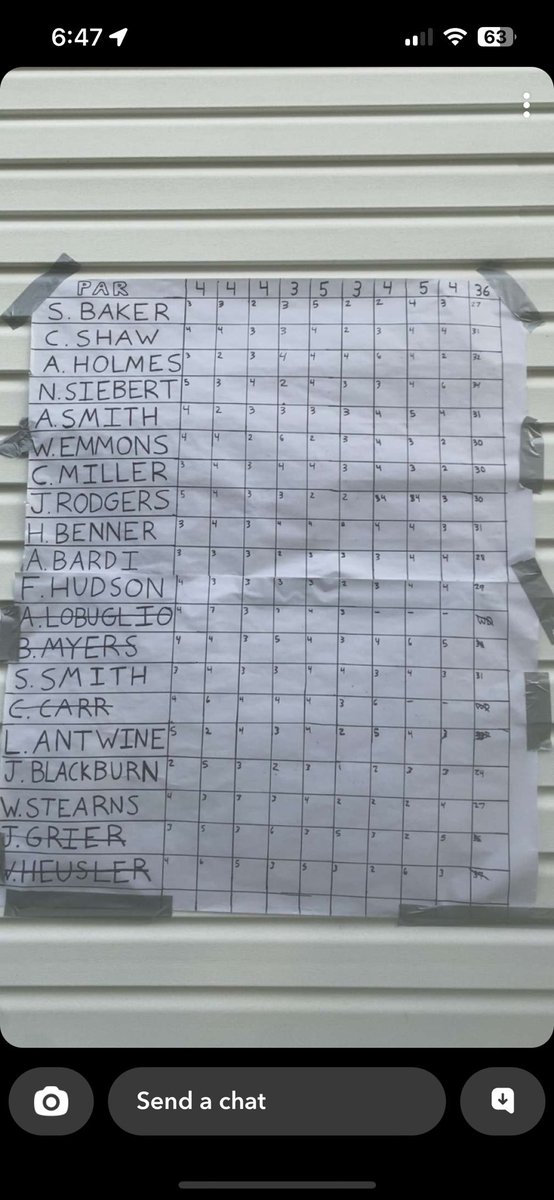 6:47
63
PAR 4 4 4 3 5 3 4 5 4 36
S. BAKER 3 3 2 3 5 2 2 4 3 27
C. SHAW 4 4 3 3 4 2 3 4 4 31
A. HOLMES 3 2 3 4 4 4 6 4 2 32
N. SIEBERT 5 3 4 2 4 3 3 4 6 34
A. SMITH 4 2 3 3 3 3 4 5 4 31
W. EMMONS 4 4 2 6 2 3 4 3 2 30
C. MILLER 3 4 3 4 4 3 4 3 2 30
J. RODGERS 5 4 3 3 2 2 4 4 3 30
H. BENNER 3 4 3 4 4 4 3 31
A. BARDI 3 3 3 2 3 3 3 4 4 28
F. HUDSON 4 3 3 3 3 2 3 4 4 29
A. LOBUGLIO 4 7 3 7 4 3 - - -
B. MYERS 4 4 3 5 4 3 4 6 5
S. SMITH 3 4 3 3 4 4 3 4 3 31
C. CARR 4 6 4 4 4 3 6 - -
L. ANTWINE 5 2 4 3 4 2 5 4 3
J. BLACKBURN 2 5 3 2 3 1 2 3 3 24
W. STEARNS 4 3 3 3 4 2 2 2 4 27
J. GRIER 3 5 3 6 3 5 3 2 5
V. HEUSLER 4 6 5 3 5 3 2 6 3
Send a chat